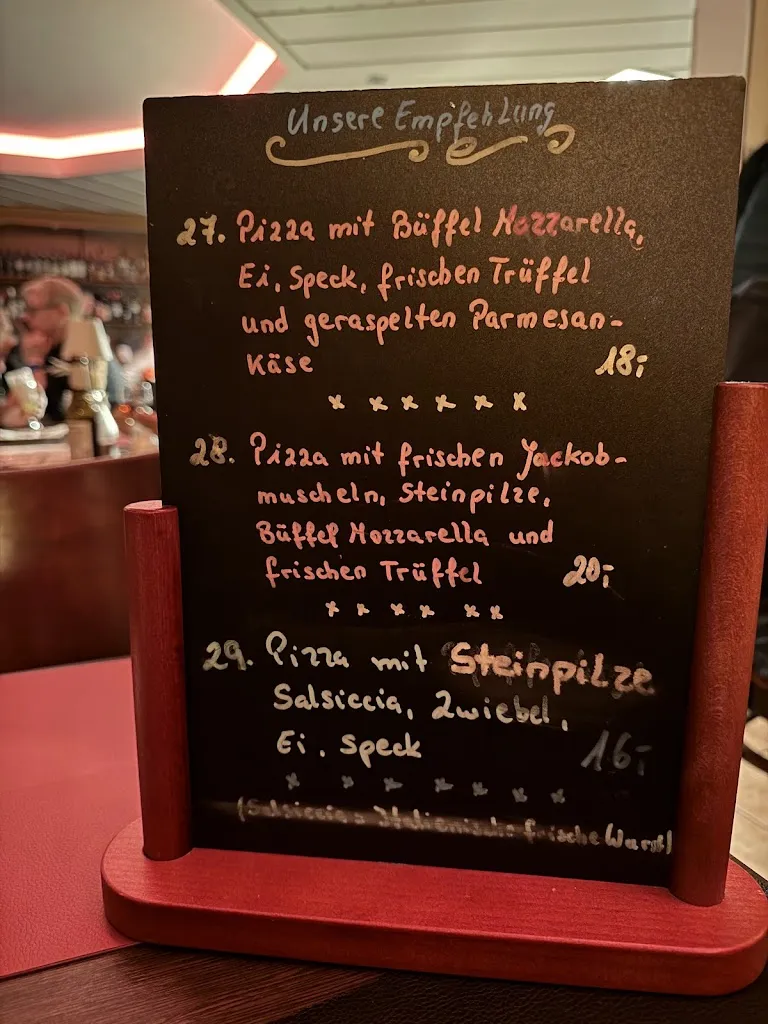 Unsere Empfehlung
27. Pizza mit Büffel Mozzarella,
Ei, Speck, frischen Trüffel
und geraspelten Parmesan-
käse 18,-
x x x x x x
28. Pizza mit frischen Jackob-
muscheln, Steinpilze,
Büffel Mozzarella und
frischen Trüffel 20,-
x x x x x x
29. Pizza mit Steinpilze
Salsiccia, Zwiebel,
Ei, Speck 16,-
x x x x x x
(Salsiccia = Italienische frische Wurst)